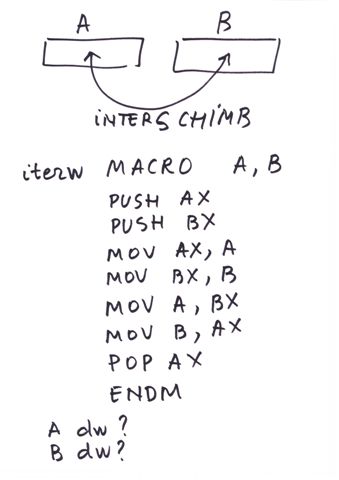 A B
INTERSCHIMB
iterw MACRO A, B
PUSH AX
PUSH BX
MOV AX, A
MOV BX, B
MOV A, BX
MOV B, AX
POP AX
ENDM
A dw ?
B dw ?